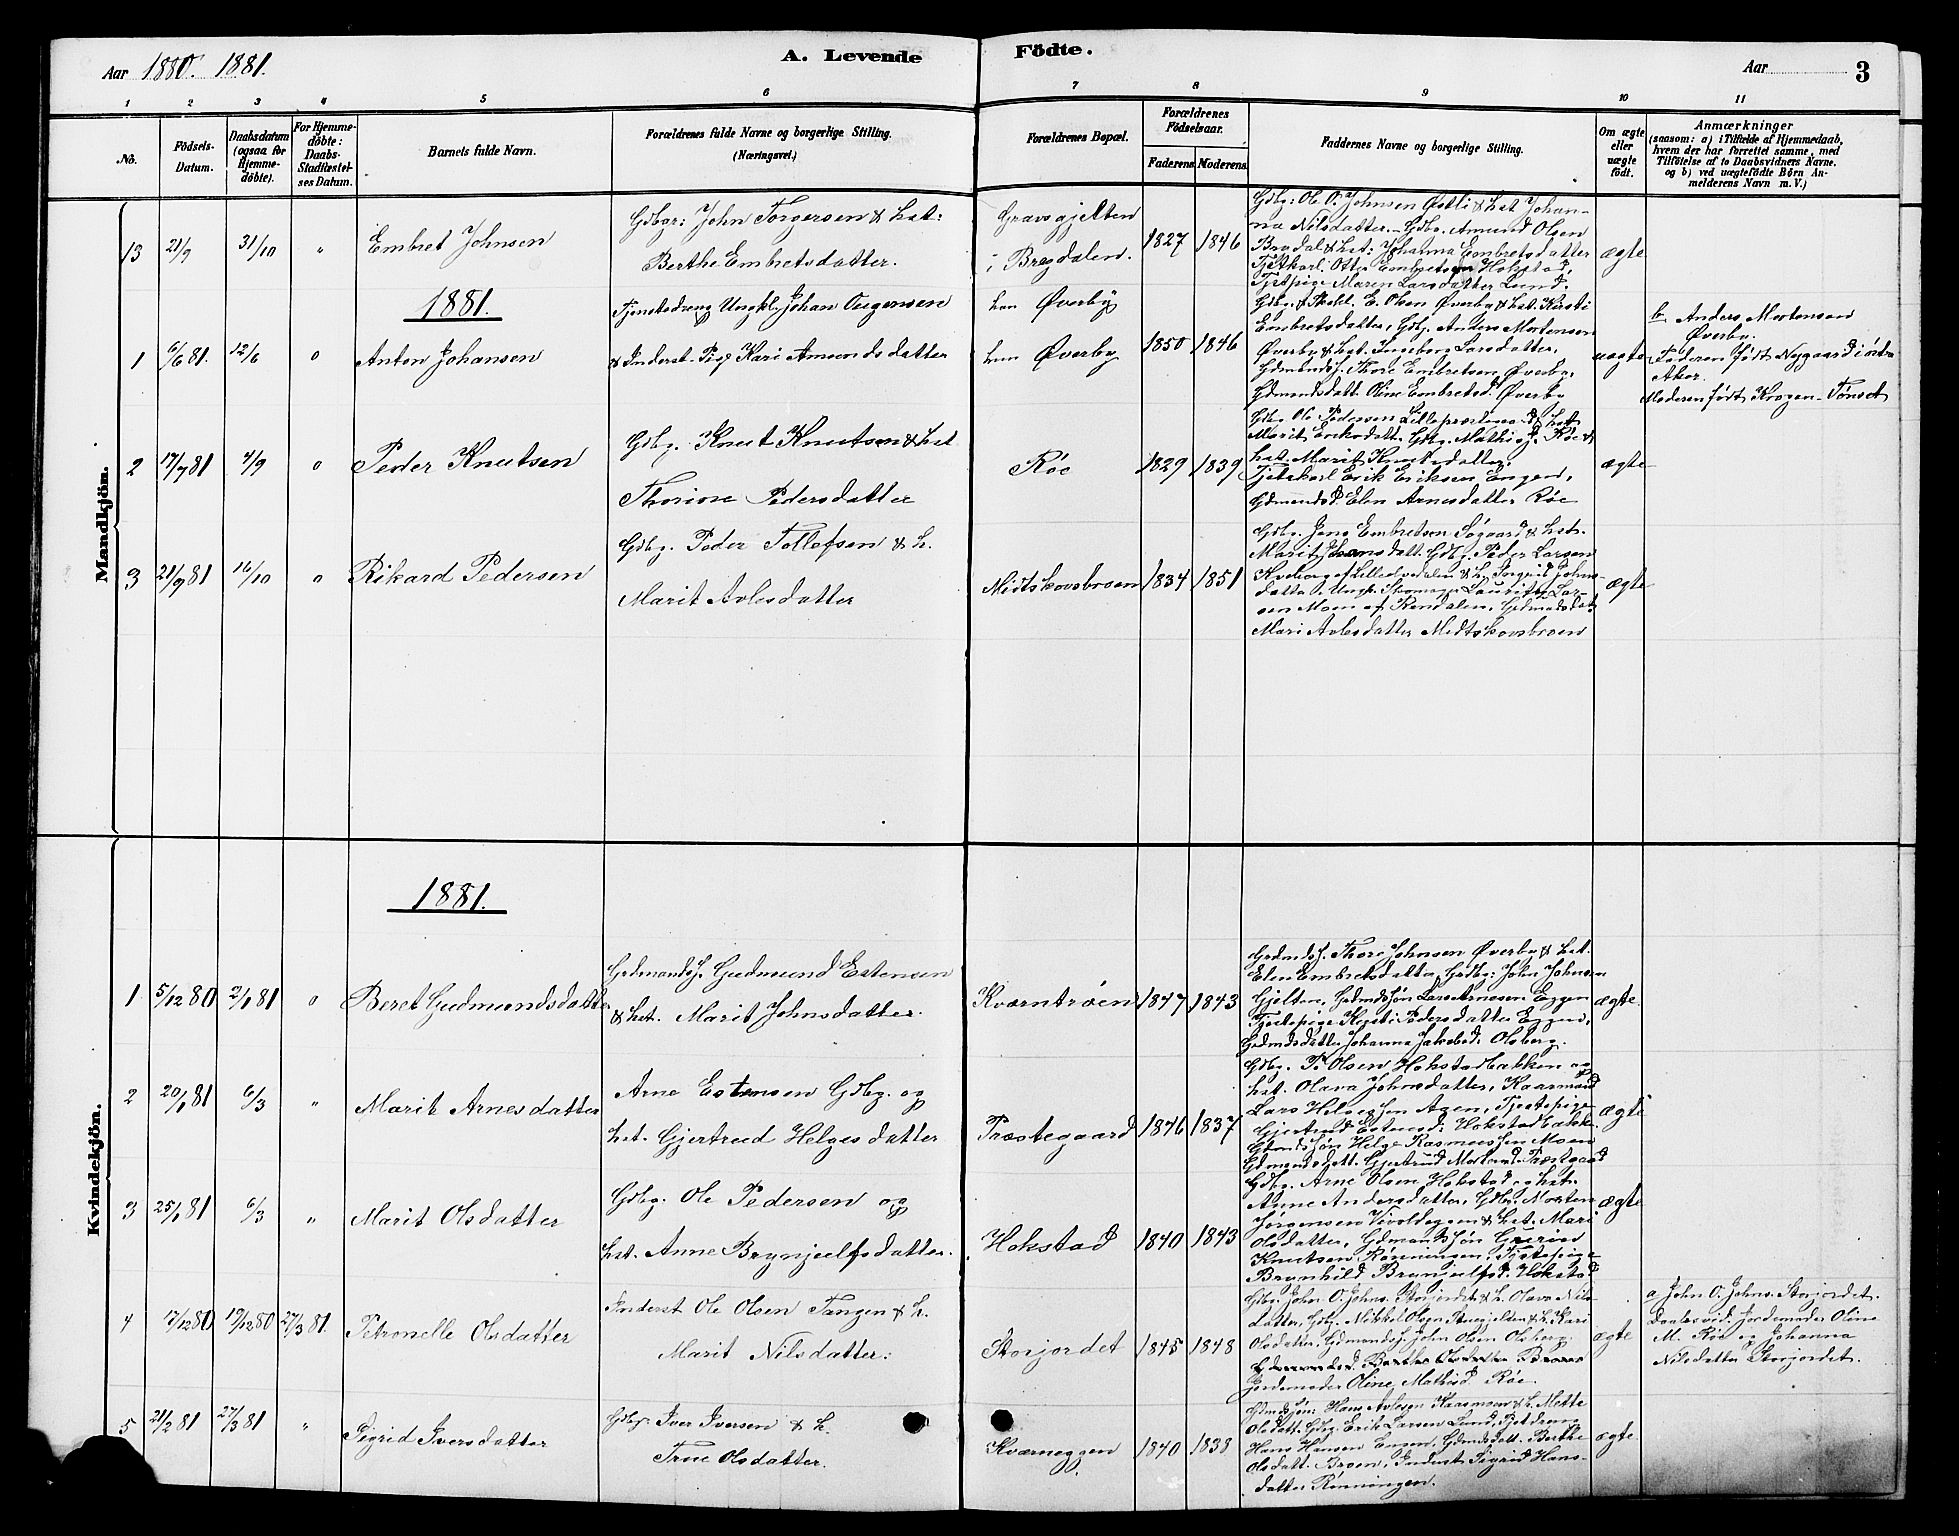 Aar 1880. 1881.
A. Levende Födte.
Aar 3
1 2 3 4 5 6 7 8 9 10 11
No.
Födsels-Datum.
Daabsdatum (ogsaa for Hjemme-döbte).
For Hjemme-döbte: Daabs-Stadfæstel-ses Datum.
Barnets fulde Navn.
Forældrenes fulde Navne og borgerlige Stilling.
(Næringsvei.)
Forældrenes Bopæl.
Forældrenes Födselsaar.
Faderens. Moderens.
Faddernes Navne og borgerlige Stilling.
Om ægte eller uægte födt.
Anmærkninger
(saasom: a) i Tilfælde af Hjemmedaab,
hvem der har forrettet samme, med
Tilföielse af to Daabsvidners Navne.
og b) ved uægtefödte Börn An-
melderens Navn m. V.)
Mandkjön.
13 21/9 31/10 " Embret Johnsen
Gdbgr: John Torgersen & hst:
Berthe Embretsdatter.
Gravsgjelten
i Bregdalen.
1827 1846
Gdbg: Ole O. Johnsen Østli & hst Johan-
na Nilsdatter. Gdbg. Amund Olsen
Brodal & hst: Johanna Embretsdatter
Tjstkarl. Otter Embretsen Hokstad,
Tjstpige Maren Larsdatter Lund.
ægte
1881.
1 6/6 81 12/6 0 Anton Johansen
Tjenstedreng Ungkl. Johan
& Inderst. Pige Kari Amundsdatter
han Øverby
hun Øverby
1850 1846
Gdbg. & E. Olsen Øverby & hst. Kirsti
Embretsdatter, Gdbg. Anders Mortensen
Øverby & hst. Ingeborg Larsdatter,
Gdmands. Thore Embretsen Øverby,
Gdmandsdatt. Oline Embretsd. Øverby
uægte
b. Anders Mortensen
Øverby.
Faderen født Nygaard i
Aker.
Moderen født Krogen Tønset
2 17/7 81 4/9 0 Peder Knutsen
Gdbg. Knut Knutsen & hst
Thorine Pedersdatter
Røe
1829 1839
Gdbg. Ole Pedersen & hst
Marit datt. Gdbg. Mathis J. Røe &
hst. Marit Knutsdatter,
Tjstkarl Erik Eriksen Engen,
Gdmandsd. Elen Arnesdatter Røe
ægte
3 21/9 81 16/10 0 Rikard Pedersen
Gdbg. Peder Tollefsen & h.
Marit Avlesdatter
Midtskovsbroen
1834 1851
Gdbg. Jens Embretsen Søgaard & hst.
Marit datt. Gdbg. Peder Larsen
Kveberg af Lilleelvedalen & h. Sigrid Johns-
datter, Ungk. Skomager Lauritz Lar-
sen Moen af Rendalen, Gdmandsdat
Mari Avlesdatter Midtskovsbroen
ægte
Kvindekjön.
1881.
1 5/12 80 2/1 81 0 Beret Gudmundsdatter
Grdmands. Gudmund Estensen
& hst. Marit Johnsdatter.
Kværntrøen
1847 1843
Grdmds. Thore Johnsen Øverby & hst.
Elen Embretsdatter, Grdbg: John Johnsen
Gjelten, Grdmdssøn Lars Arnesen Eggen
Tjstepige Kjersti Pedersdatter Eggen,
Grdmdsdatter Johanna Jakobsd: Olsberg.
ægte.
2 20/1 81 6/3 " Marit Arnesdatter
Arne Estensen Gdbg. og
hst. Gjertrud Helgesdatter
Præstegaard
1846 1837
Gdbg. P. Olsen Hokstadbakken og
hst. Olava Johnsdatter, Kaarmand
Lars Helgessen Agen, Tjstepige
Gjertrud Estensd: Hokstadbakke.
Gmdssøn Helge Rasmussen Moen
Gdmandsdatt. Gjertrud Præstgaard
ægte
3 25/1 81 6/3 " Marit Olsdatter
Gdbg. Ole Pedersen og
hst. Anne Brynjulfsdatter.
Hokstad
1840 1843
Gdbg. Arne Olsen Hokstad & hst.
Anne Andersdatter, Gdbg. Morten
Jørgensen Vivoldeggen & hst. Mari
Olsdatter, Gdmandssøn
Knutsen Rønningen, Tjstepige
Brynhild Brynjulfsd. Hokstad
ægte
4 17/12 80 19/12 80 27/3 81. Petronelle Olsdatter
Inderst Ole Olsen Tangen & h.
Marit Nilsdatter:
Storjordet
1845 1848
Gdbg. John O. Johns. Storjordet & h. Olava Nils
datter, Gdbg. Mikkel Olsen & h. Kari
Olsdatter, Gdmands. John Olsen Olsberg.
Jordemoder Oline Mathisd Røe.
ægte
a John O. Johns. Storjordet.
Daabsvid. Jordemoder Oline
M. Røe og Johanna
Nilsdatter Storjordet.
5 21/2 81 27/3 81 " Sigrid Iversdatter
Gdbg. Iver Iversen & h.
Trne Olsdatter.
Kværneggen
1840 1838
Gdmdssøn: Hans Avlesen Kaasmoen & h. Mette
Olsdatt. Gdbg. Erik Larsen Lund, Tjstdreng
Hans Hansen Engen, Gdmdsdatt. Berthe
Olsdatt. Broen, Inderst Sigrid Hans-
datter Rønningen.
ægte.